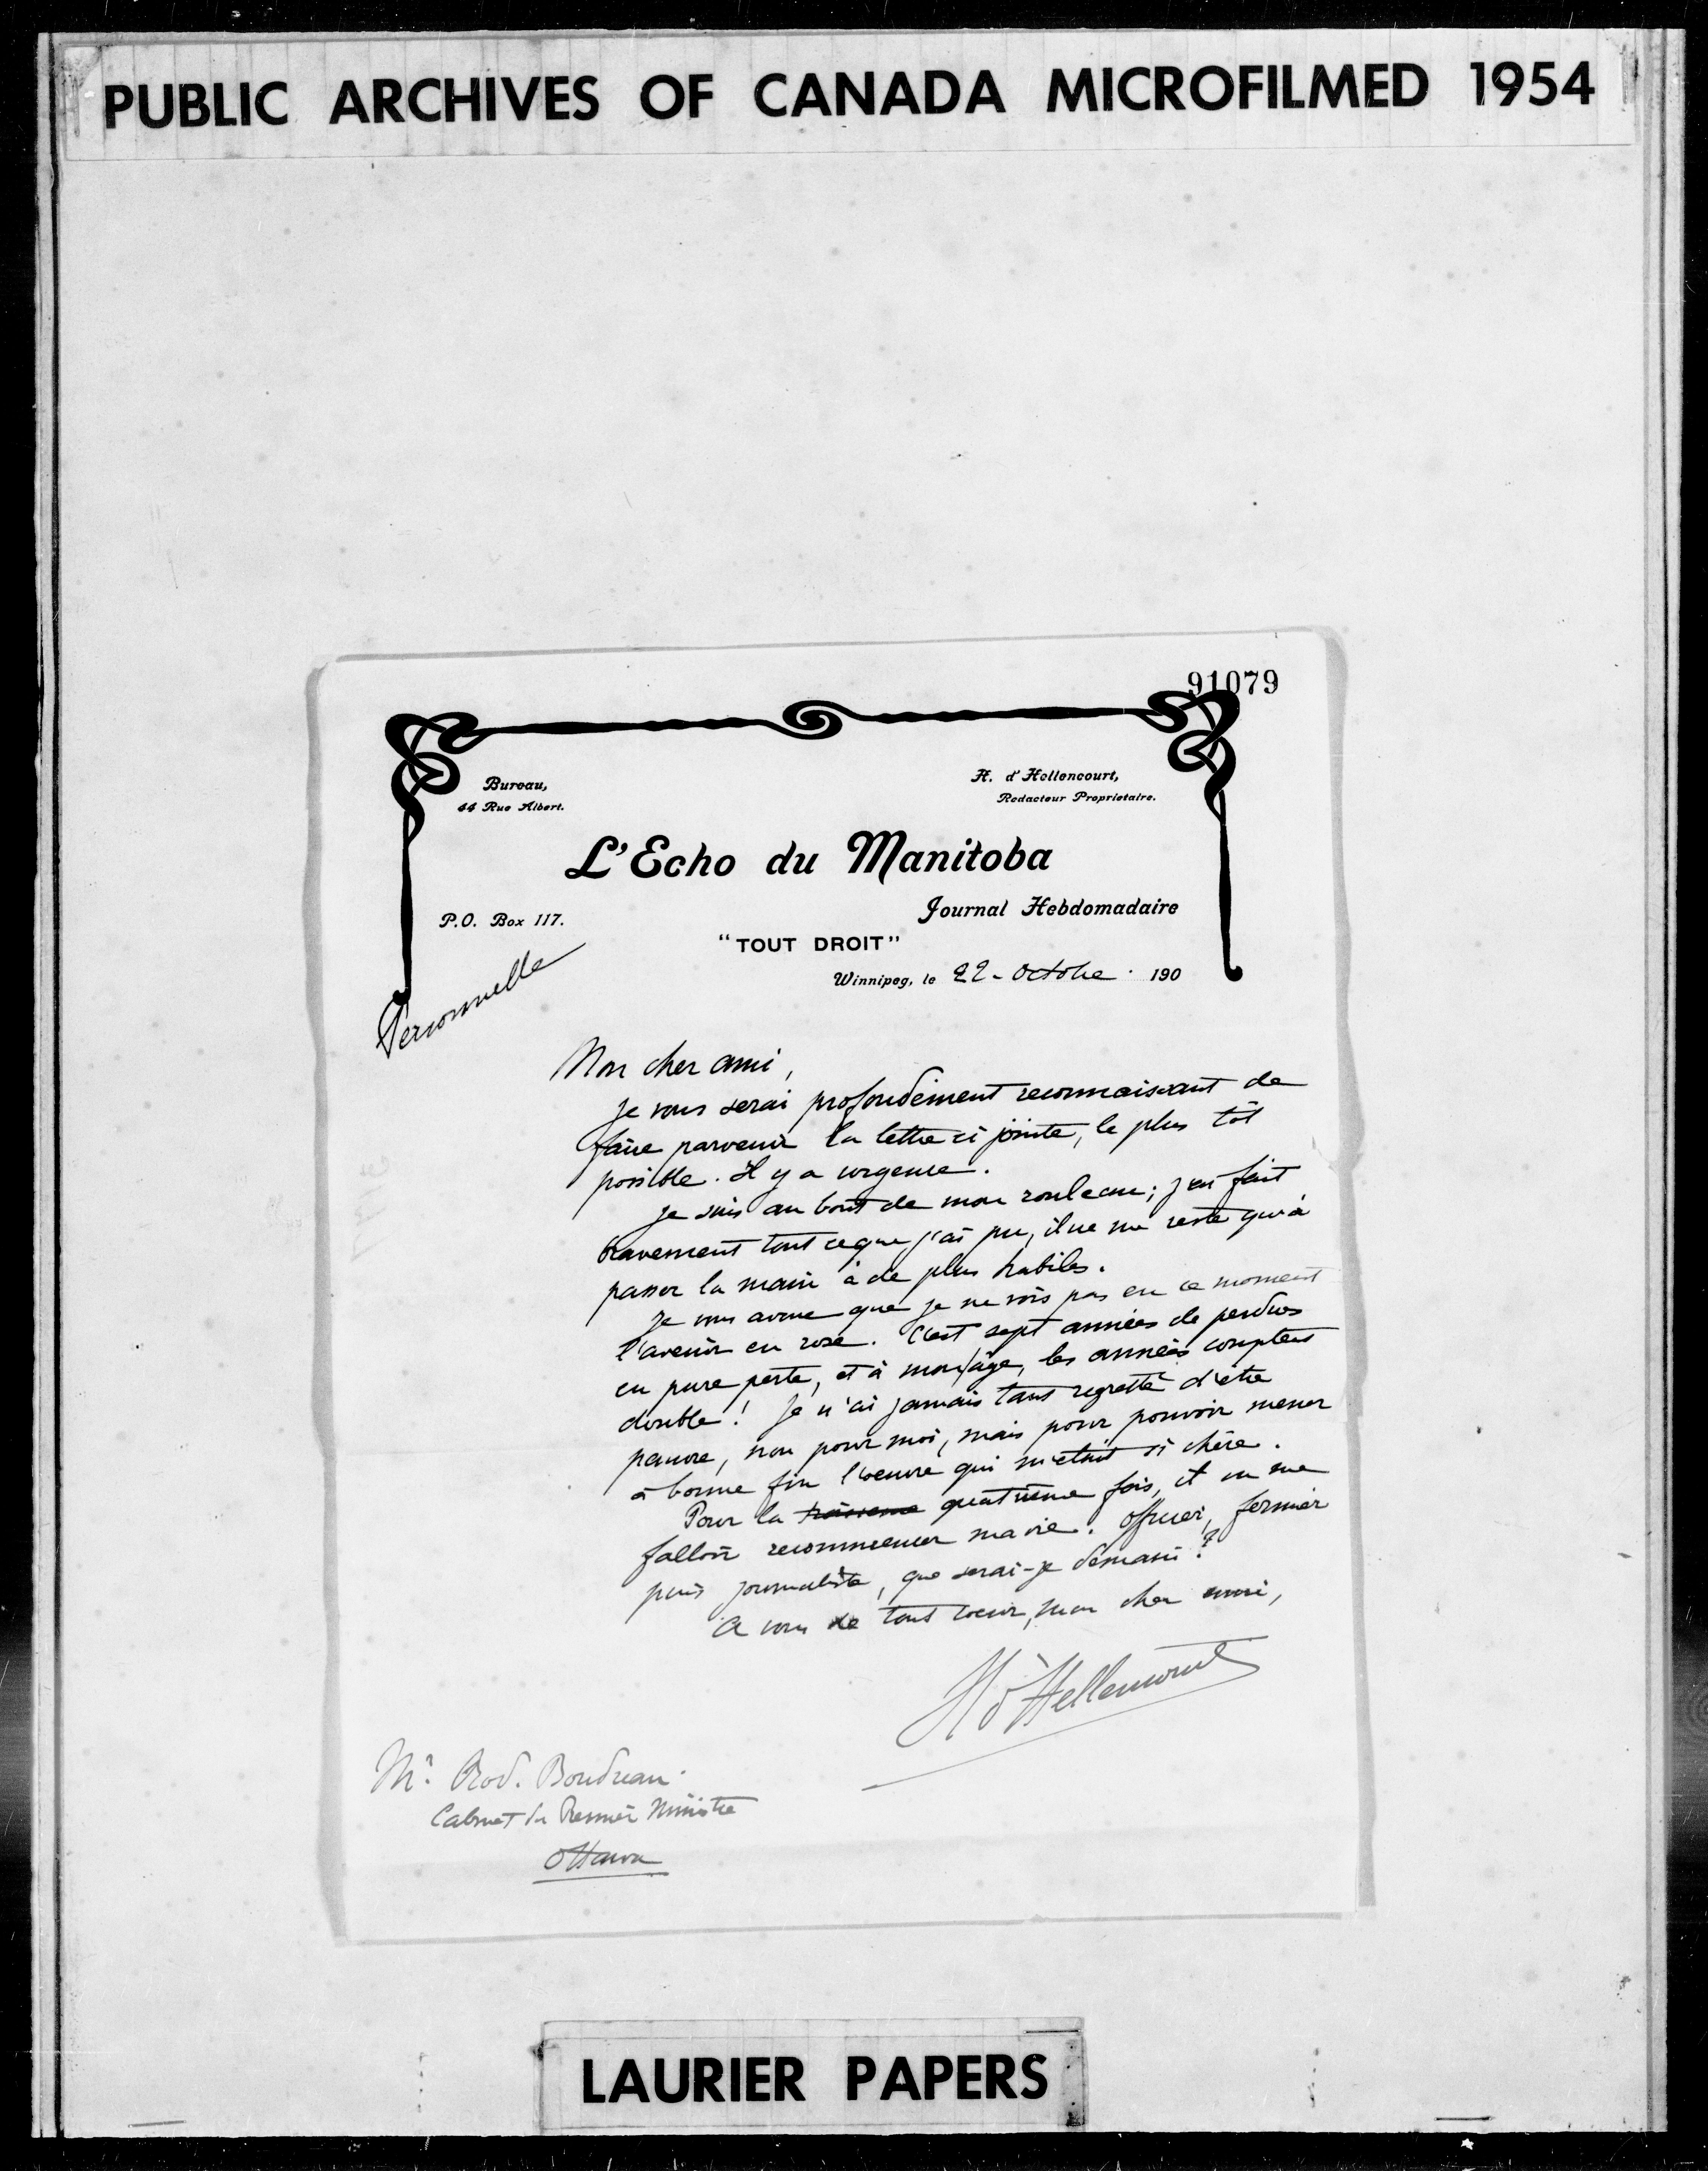 PUBLIC ARCHIVES OF CANADA MICROFILMED 1954
91079
Bureau,
44 Rue Albert.
H. d'Hellencourt,
Redacteur Proprietaire.
L'Echo du Manitoba
Journal Hebdomadaire
P.O. Box 117.
"TOUT DROIT"
Winnipeg, le 22 - Octobre 190
Personnelle
Mon cher ami,
Je vous serai profondément reconnaissant de
faire parvenir la lettre ci jointe, le plus tôt
possible. Il y a urgence.
Je suis au bout de mon rouleau; j'ai fait
bravement tout ce que j'ai pu, il ne me reste qu'à
passer la main à de plus habiles.
Je vous avoue que je ne vois pas en ce moment
l'avenir en rose. C'est sept années de perdues
en pure perte, et à mon âge, les années comptent
double! Je n'ai jamais tant regretté d'être
pauvre, non pour moi, mais pour pouvoir mener
à bonne fin l'oeuvre qui m'était si chère.
Pour la troisieme quatrième fois, il va me
falloir recommencer ma vie. Officier, fermier
puis journaliste, que serai-je demain?
A vous de tout coeur, mon cher ami,
H d'Hellencourt
Mr. Rod. Boudreau.
Cabinet du Premier Ministre
Ottawa
LAURIER PAPERS